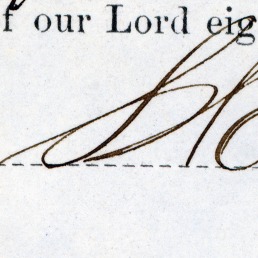 f our Lord eig